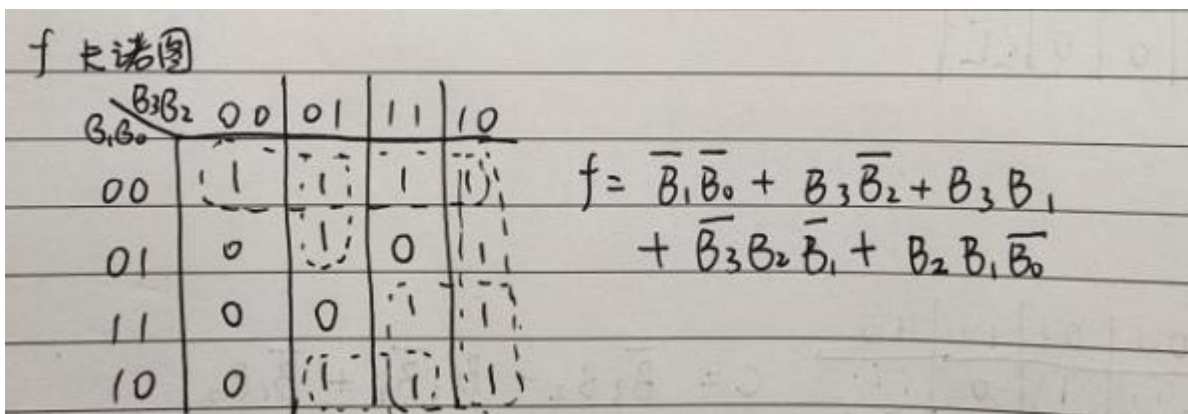 f 卡诺图
B₃B₂ 00 01 11 10
B₁B₀
00 1 1 1 1
01 0 1 0 1
11 0 0 1 1
10 0 1 1 1
f = B̅₁B̅₀ + B₃B̅₂ + B₃B₁
+ B̅₃B₂B̅₁ + B₂B₁B̅₀